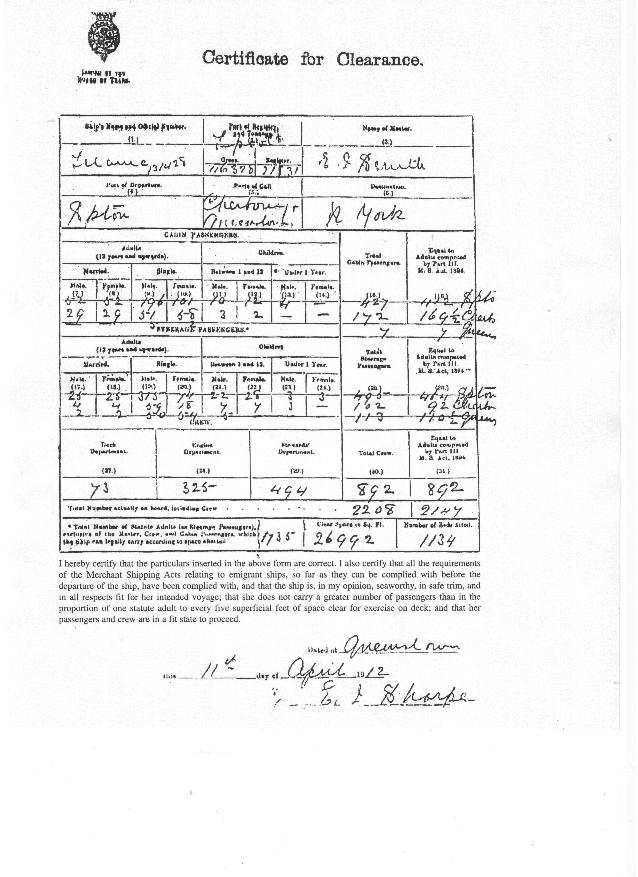 Certificate for Clearance.
ISSUED BY THE
BOARD OF TRADE.
Ship's Name and Official Number. Port of Registry and Tonnage Name of Master.
(1.) (3.)
Titanic 131428 Gross. Register. E. J. Smith
Port of Departure. Ports of Call Destination.
(4.) (5.) (6.)
S'pton Cherbourg N York
Queenstown
CABIN PASSENGERS.
Adults (12 years and upwards). Children. Total Cabin Passengers. Equal to Adults computed by Part III. M. S. Act, 1894.
Married. Single. Between 1 and 12 Under 1 Year.
Male. Female. Male. Female. Male. Female. Male. Female.
(7.) (8.) (9.) (10.) (11.) (12.) (13.) (14.) (15.) (16.)
52 52 427
29 29 51 58 3 2 — — 172 169½ Cherb
7 7 Queens
STEERAGE PASSENGERS.
Adults (12 years and upwards). Children Total Steerage Passengers. Equal to Adults computed by Part III, M. S. Act, 1894
Married. Single. Between 1 and 12. Under 1 Year.
Male. Female. Male. Female. Male. Female. Male. Female.
(17.) (18.) (19.) (20.) (21.) (22.) (23.) (24.) (25.) (26.)
25 25 22 3 3 495 S'pton
4 4 18 7 7 3 — 102 92 Cherb
2 2 113 Queens
CREW.
Deck Department. Engine Department. Stewards' Department. Total Crew. Equal to Adults computed by Part III M. S. Act, 1894
(27.) (28.) (29.) (30.) (31.)
73 325 494 892 892
Total Number actually on board, including Crew 2208 2147
* Total Number of Statute Adults (as Steerage Passengers), exclusive of the Master, Crew, and Cabin Passengers, which the Ship can legally carry according to space allotted 1735 Clear Space in Sq. Ft. 26992 Number of Beds fitted. 1134
I hereby certify that the particulars inserted in the above form are correct. I also certify that all the requirements
of the Merchant Shipping Acts relating to emigrant ships, so far as they can be complied with before the
departure of the ship, have been complied with, and that the ship is, in my opinion, seaworthy, in safe trim, and
in all respects fit for her intended voyage; that she does not carry a greater number of passengers than in the
proportion of one statute adult to every five superficial feet of space clear for exercise on deck; and that her
passengers and crew are in a fit state to proceed.
Dated at Queenstown
this 11th day of April 1912
E. J Sharpe